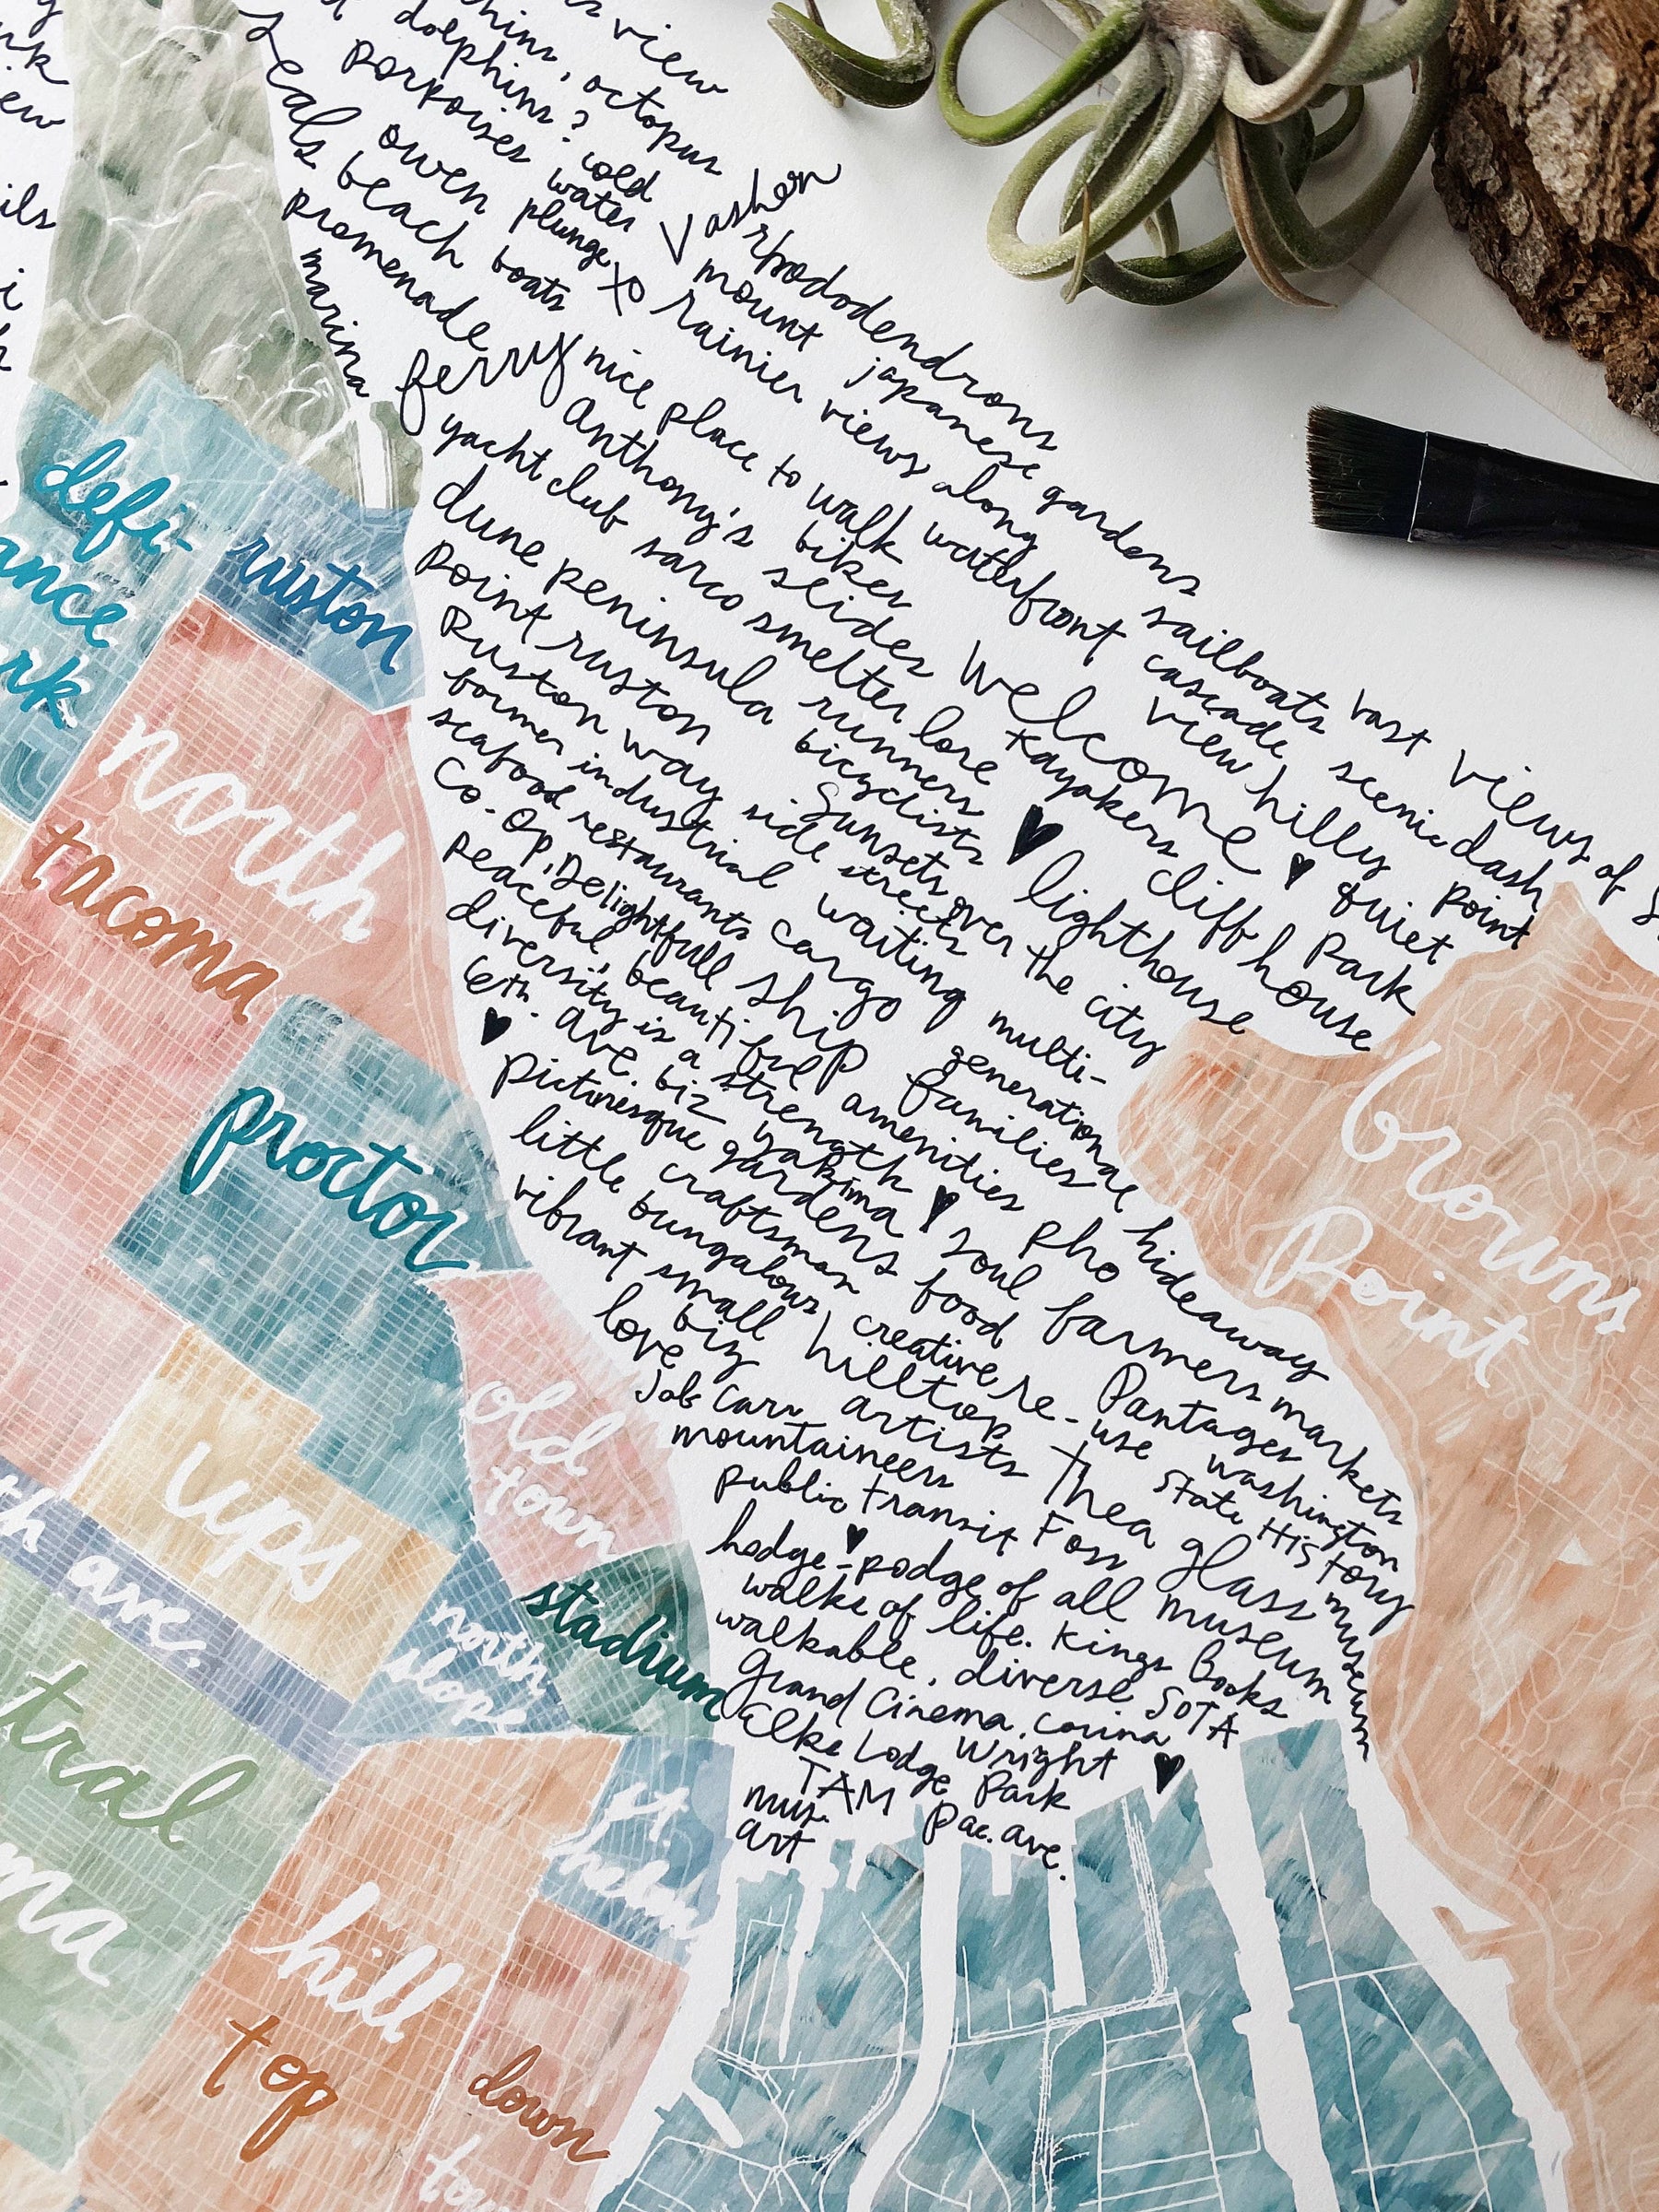 view
octopus
dolphins?
porpoises
cold
water
plunge
seals
owen
beach
boats
Vashon
rhododendrons
promenade
mount
rainier
views
along
waterfront
japanese
gardens
marina
ferry
nice place to walk
sailboats
vast views of
Anthony's
bikes
cascade
view
scenic dash
point
yacht club
slides
Welcome
hilly
quiet
park
dune peninsula
sarco smelter lore
kayakers
cliff house
point ruston
runners
bicyclists
lighthouse
Ruston way
Sunsets over the city
side streets
former industrial
waiting
seafood restaurants
cargo
ship
Co-op, Delightfull
multi-
generational
families
peaceful, beautiful
amenities
hideaway
diversity is a strength
pho
6th. ave. biz
yakima
soul
food
farmers markets
picturesque gardens
little craftsman
bungalows
creative re-use
Pantages
washington
State History
museum
vibrant small
biz
hilltop
artists
Thea
glass
museum
love
Job Carr
mountaineers
public transit
Foss
hodge-podge of all
walks of life.
Kings Books
walkable, diverse
SOTA
Grand Cinema,
Elks Lodge
Wright
Park
TAM
mus.
art
pac. ave.
defi-
ance
ruston
north
tacoma
proctor
old
town
ups
ave.
stadium
north
slope
st
helens
hill
top
down
town
browns
Point